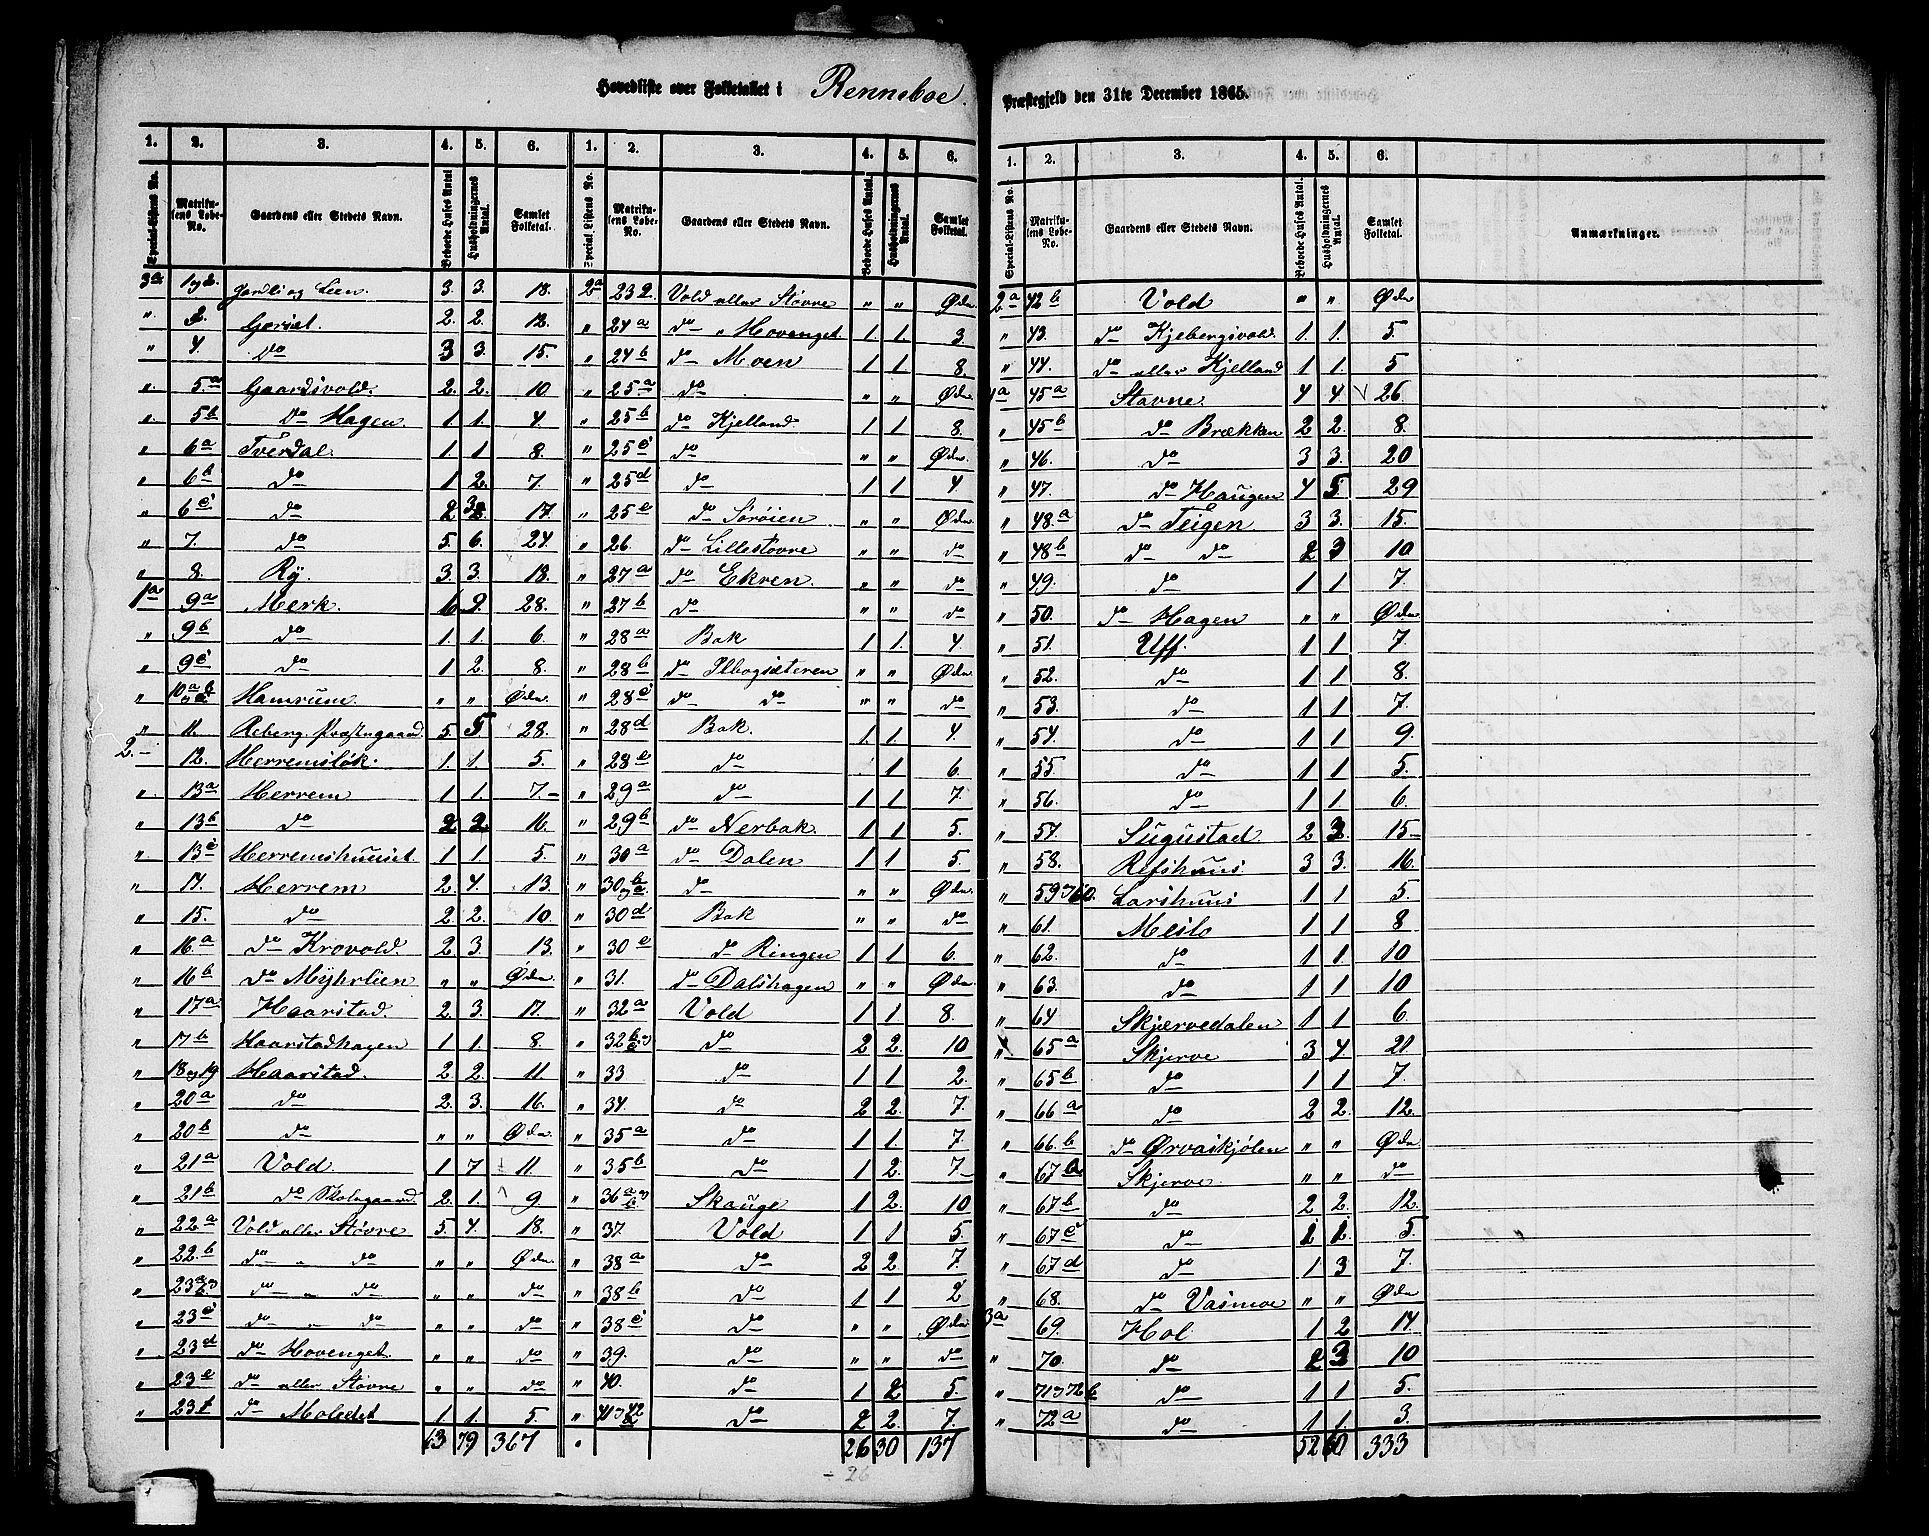 Hovedliste over Folketallet i Renneboe Præstegjeld den 31te December 1865.
1. 2. 3. 4. 5. 6. 1. 2. 3. 4. 5. 6.
Special-Listens No. Matrikulens Løbe-No. Gaardens eller Stedets Navn. Beboede Huses Antal Husholdningernes Antal. Samlet Folketal. Special-Listens No. Matrikulens Løbe-No. Gaardens eller Stedets Navn. Beboede Huses Antal. Husholdningernes Antal. Samlet Folketal.
3a 1 og 2. Jordli og Lien 3. 3. 18.
" 3. Gorset. 2. 2. 12.
" 4. do 3 3. 15.
" 5.a Gaardsvold. 2. 2. 10
" 5b do Hagen. 1 1. 4.
" 6a Tverdal. 1 1 8.
" 6b do 1 2. 7.
" 6c do 2 3. 17.
" 7. do 5. 6. 24.
" 8. Ry. 3. 3. 18.
1a 9a Merk. 6 9. 28.
" 9b do 1. 1. 6.
" 9c do 1 2. 8.
" 10a Hamrum. " " Øde.
" 11. Reberg. Præstegaard. 5. 5 28.
2.- 12. Herremsløk. 1. 1. 5.
" 13a Herrem 1 1. 7.-
" 13b do 2 2. 16.
" 13c Herremshuuset. 1 1 5.
" 14. Herrem 2. 4. 13.
" 15. do 2. 2. 10.
" 16.a do Krovold. 2. 3. 13.
" 16b do Myhrlien " " Øde.
" 17a Haarstad. 2. 3. 17.
" 17b Haarstadhagen 1 1. 8.
" 18 og 19 Haarstad. 2. 2. 11.
" 20a do 2. 3. 16.
" 20b do " " Øde.
" 21a Vold. 1 7 11.
" 21b do Skolegaard. 2. 1. 9
" 22a Vold eller Støvre 5. 4. 18.
" 22.b do " do " " Øde.
" 23a do " do " " do
" 23c do " do " " do
" 23d do Hovenget. " " do
" 23e do eller Støvre " " do
" 23f do Moledet 1 1. 5.
63 79 367
2a 23 2. Vold eller Støvre " " Øde
" 24a do " Hovenget. 1. 1. 3.
" 24b do Moen 1 1 8.
" 25a do " " Øde
" 25b do Kjelland 1 1 8.
" 25c do " " Øde.
" 25d do 1 1 4
" 25e do Sørøien " " Øde
" 26. do Lillestøvre " " do
" 27a do Ekren. " " do
" 27b do " " do
" 28a Bak 1 1. 4
" 28b do Ilbogsæteren " " Øde.
" 28c do do " " do
" 28d Bak. 1. 1. 4.
" 28e do 1 6.
" 29a do 1 1 7.
" 29b do Nerbak. 1 1 5.
" 30a do Dalen 1 1 5.
" 30b do " " Øde
" 30d Bak " " do
" 30e do Ringen 1 1 6.
" 31. do Dalshagen " " Øde.
" 32a Vold 1 1 8.
" 32b do 2 2. 10
" 33 do 1 1 2.
" 34. do 2 2. 7.
" 35a do 1 1. 7.
" 35b do 1 2. 7-
" 36a Skauge 1 2. 10
" 37. Vold 1 1 5.
" 38a do 2 2. 7.
" 38b do 1 1 2
" 38c do " " Øde
" 39. do " " do
" 40. do 1 2 5.
" 41 og 42 do 2 2. 7.
26 30 137
- 26
1. 2. 3. 4. 5. 6.
Special-Listens No. Matrikulens Løbe-No. Gaardens eller Stedets Navn. Beboede Huses Antal. Husholdningernes Antal. Samlet Folketal. Anmærkninger.
2a 42b Vold " " Øde
" 43. do Kjebergsvold. 1 1. 5.
" 44. do eller Kjelland 1 1. 5
1a 45a Stavne. 4 4. 26.
" 45b do Brækken 2 2. 8.
" 46. do 3 3. 20
" 47. do Haugen 4 5. 29
" 48.a do Teigen 3 3. 15.
" 48b do do 2 3 10
" 49. do 1 1 7.
" 50. do Hagen " " Øde
" 51. Uff. 1 1 7.
" 52. do 1 1 8.
" 53. do 1 1 7.
" 54. do 1 1 9.
" 55. do 1 1 5.
" 56. do 1 1 6.
" 57. Sugustad 2 3. 15-
" 58. Refshuus. 3 3. 16.
" 59 og 60. Larshuus 1 1 5.
" 61. Meslo 1 1 8
" 62. do 1 1 10
" 63. do 1 1 10
" 64 Skjærvedalen 1 1 6
" 65a Skjerve 3 4 21
" 65b do 1 1 7.
" 66a do 2 2. 12.
" 66.b do Ørvaskjølen " " Øde
" 67a Skjerve. " " do
" 67b do 2 2. 12.
" 67c do 1 1. 5.
" 67d do 1 3 7.
" 68. do Vasmoe " " Øde
3a 69. Hol. 1 2 14
" 70. do 2 3 10
" 71 og 72b do 1 1 5.
" 72a do 1 1. 3.
52 60 333